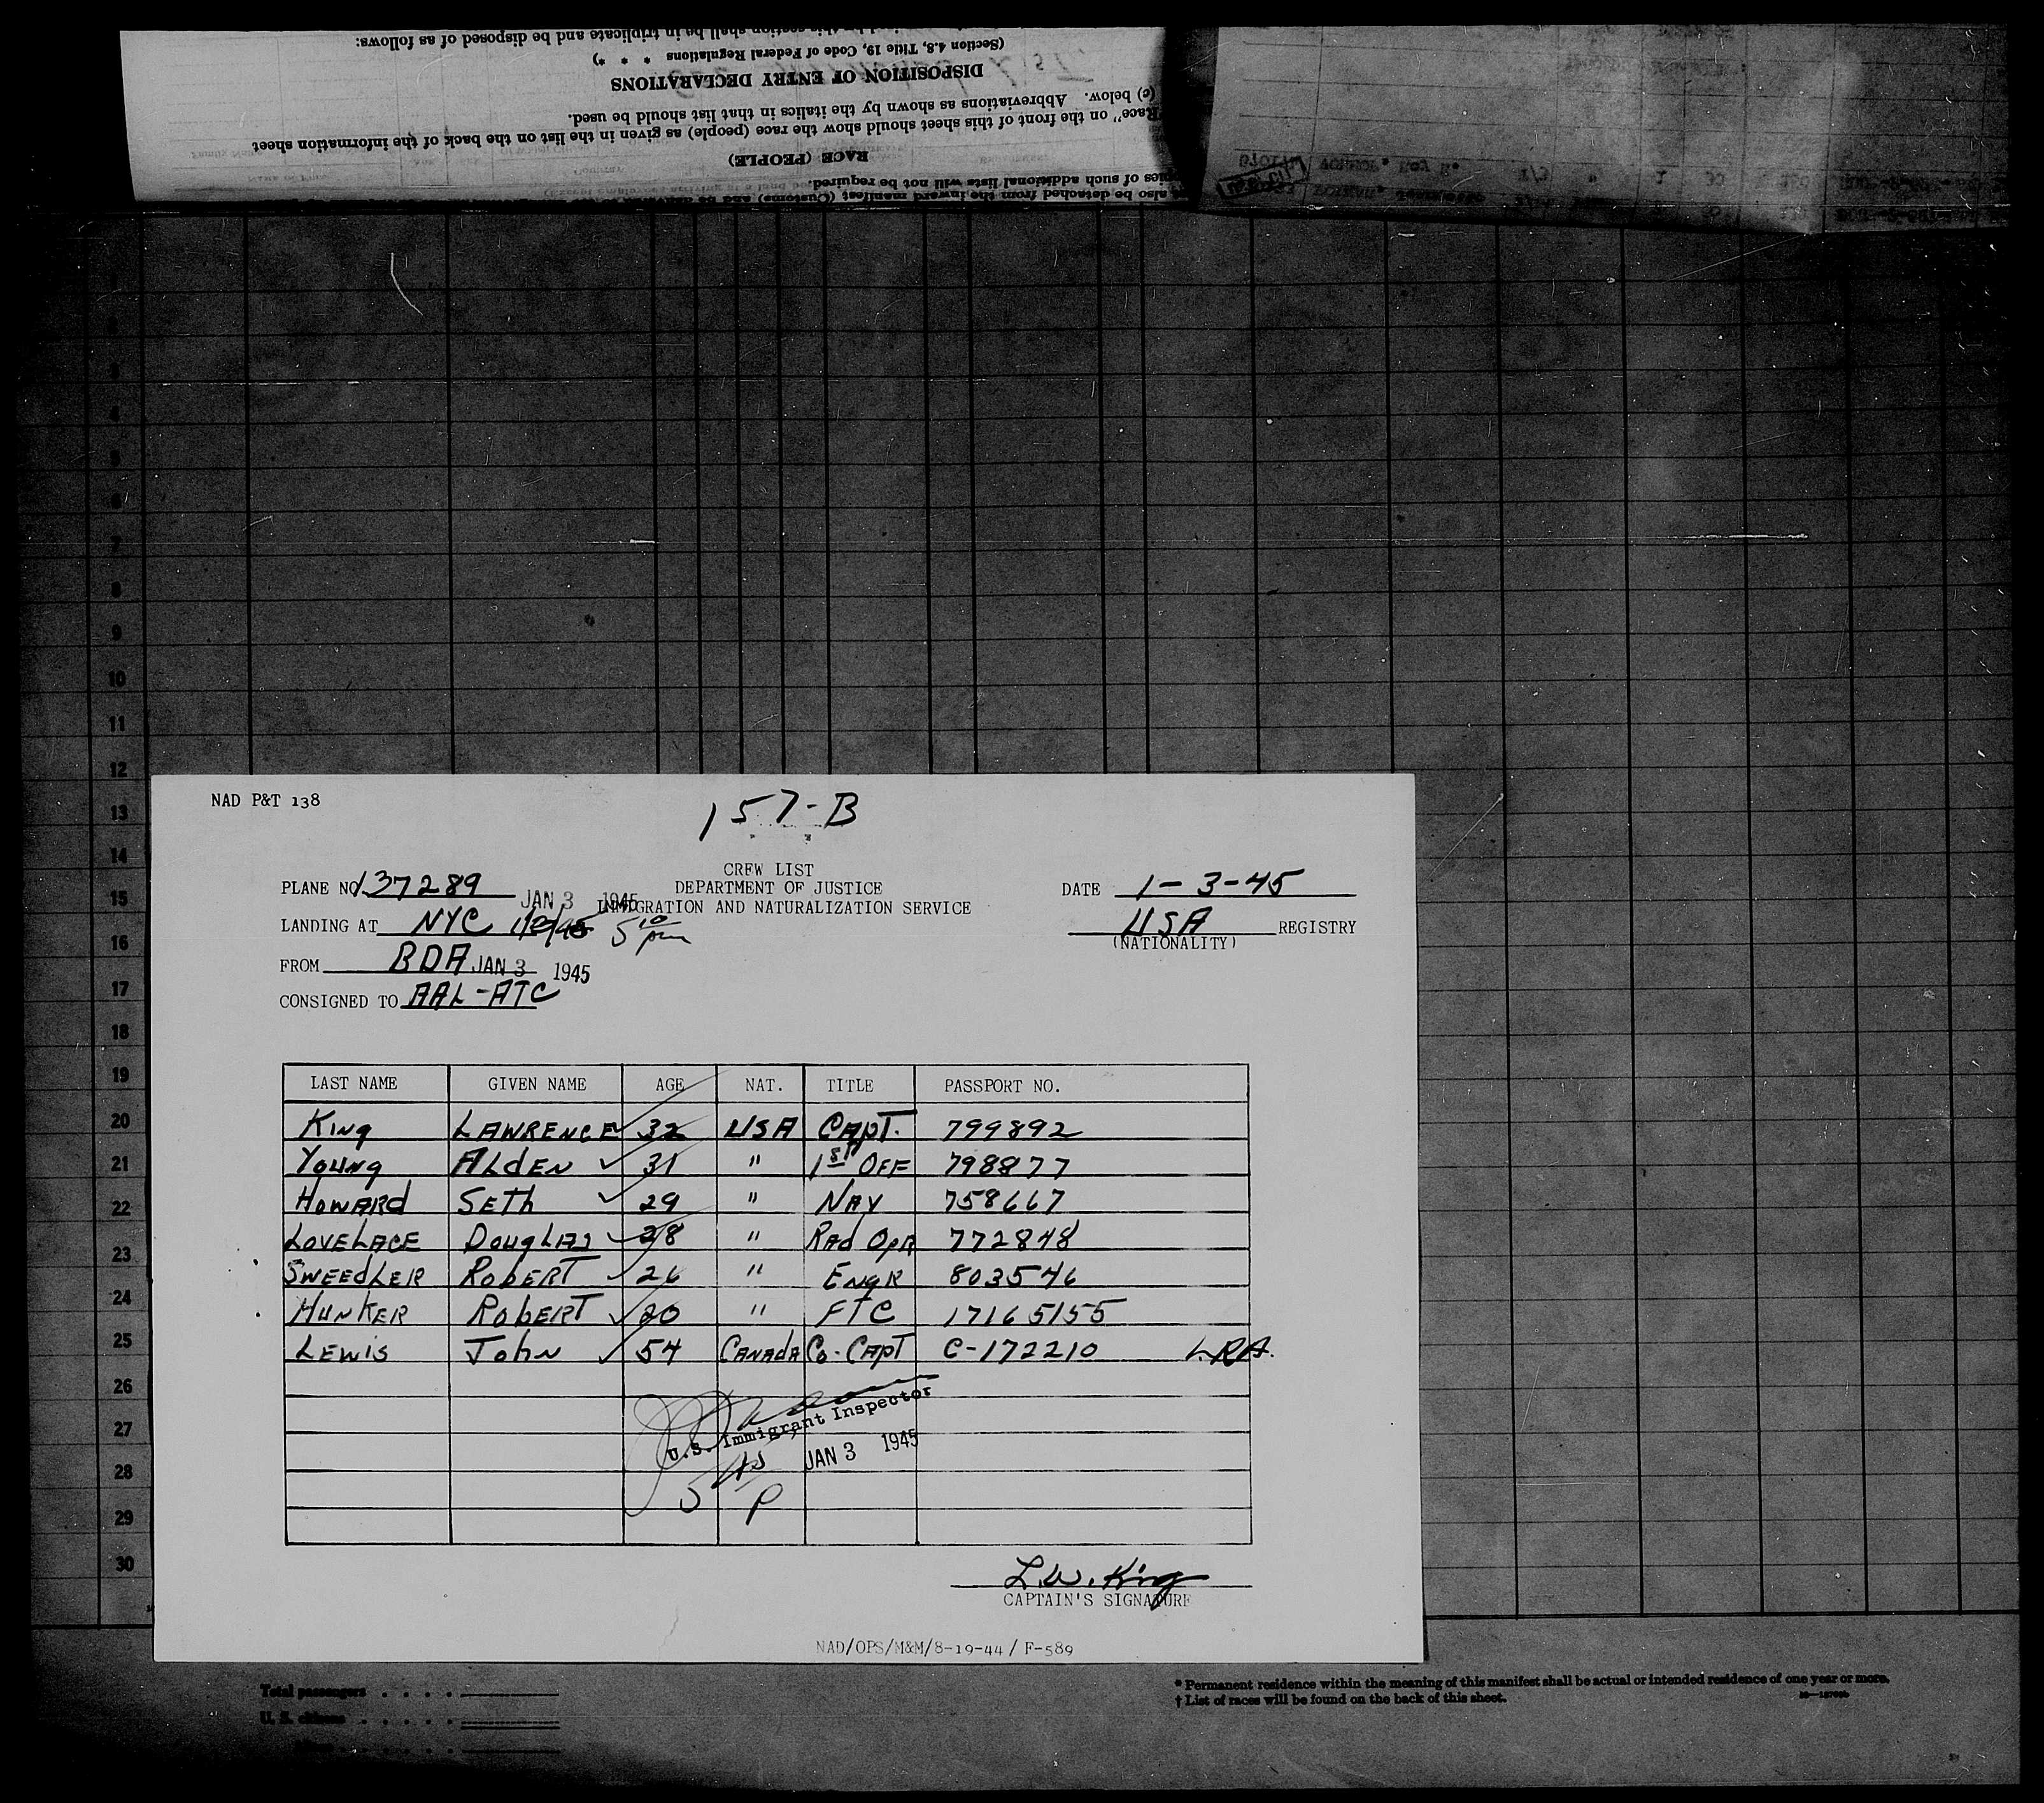 this section shall be in triplicate and be disposed of as follows:
(Section 4.8, Title 19, Code of Federal Regulations * * *)
DISPOSITION OF ENTRY DECLARATIONS
(c) below. Abbreviations as shown by the italics in that list should be used.
"Race" on the front of this sheet should show the race (people) as given in the list on the back of the information sheet
RACE (PEOPLE)
copies of such additional lists will not be required.
also be detached from the inward manifest (Customs) and be
4
5
6
7
8
9
10
11
12
13
14
15
16
17
18
19
20
21
22
23
24
25
26
27
28
29
30
NAD P&T 138
157-B
CREW LIST
DEPARTMENT OF JUSTICE
IMMIGRATION AND NATURALIZATION SERVICE
PLANE NO. 37289 JAN 3 1945
DATE 1-3-45
LANDING AT NYC 5 10 pm
USA REGISTRY
(NATIONALITY)
FROM BDA JAN 3 1945
CONSIGNED TO AAL-ATC
LAST NAME GIVEN NAME AGE NAT. TITLE PASSPORT NO.
King LAWRENCE 32 USA CAPT. 799892
Young ALDEN 31 " 1st OFF 798877
HOWARD SETH 29 " NAV 758667
LOVELACE DOUGLAS 28 " RAD OPR 772848
SWEEDLER ROBERT 26 " ENGR 803546
HUNKER ROBERT 20 " FTC 17165155
LEWIS JOHN 54 CANADA CO-CAPT C-172210 L.R.A.
U.S. Immigrant Inspector
JAN 3 1945
5 P
L.W. King
CAPTAIN'S SIGNATURE
NAD/OPS/M&M/8-19-44 / F-589
Total passengers
U. S. citizens
* Permanent residence within the meaning of this manifest shall be actual or intended residence of one year or more.
† List of races will be found on the back of this sheet.